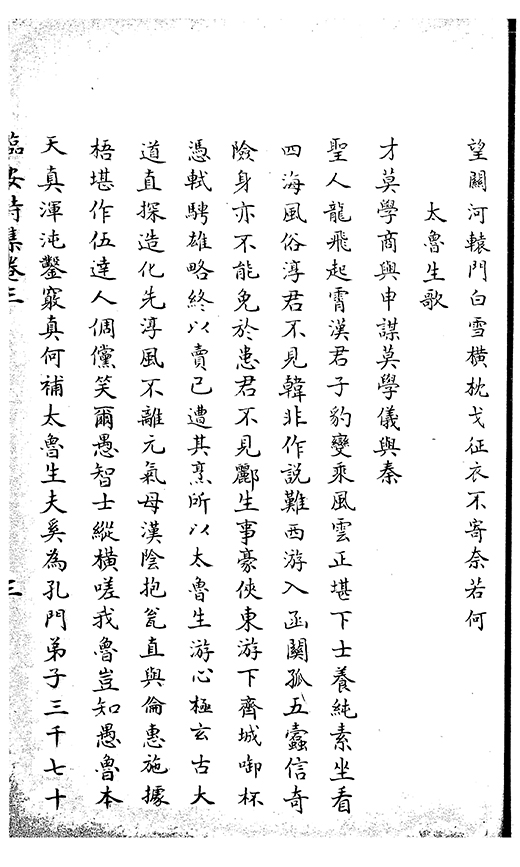 望關河轅門白雪橫枕戈征衣不寄奈若何
太魯生歌
才莫學商與申謀莫學儀與秦
聖人龍飛起霄漢君子豹變乘風雲正堪下士養純素坐看
四海風俗淳君不見韓非作説難西游入函關孤五蠹信奇
險身亦不能免於患君不見酈生事豪俠東游下齊城啣杯
憑軾騁雄略終以賣已遭其烹所以太魯生游心極玄古大
道直探造化先淳風不離元氣母漢陰抱瓮直與倫惠施據
梧堪作伍達人倜儻笑爾愚智士縱橫嗟我魯豈知愚魯本
天真渾沌鑿竅真何補太魯生夫奚為孔門弟子三千七十
臨安詩集卷三 三